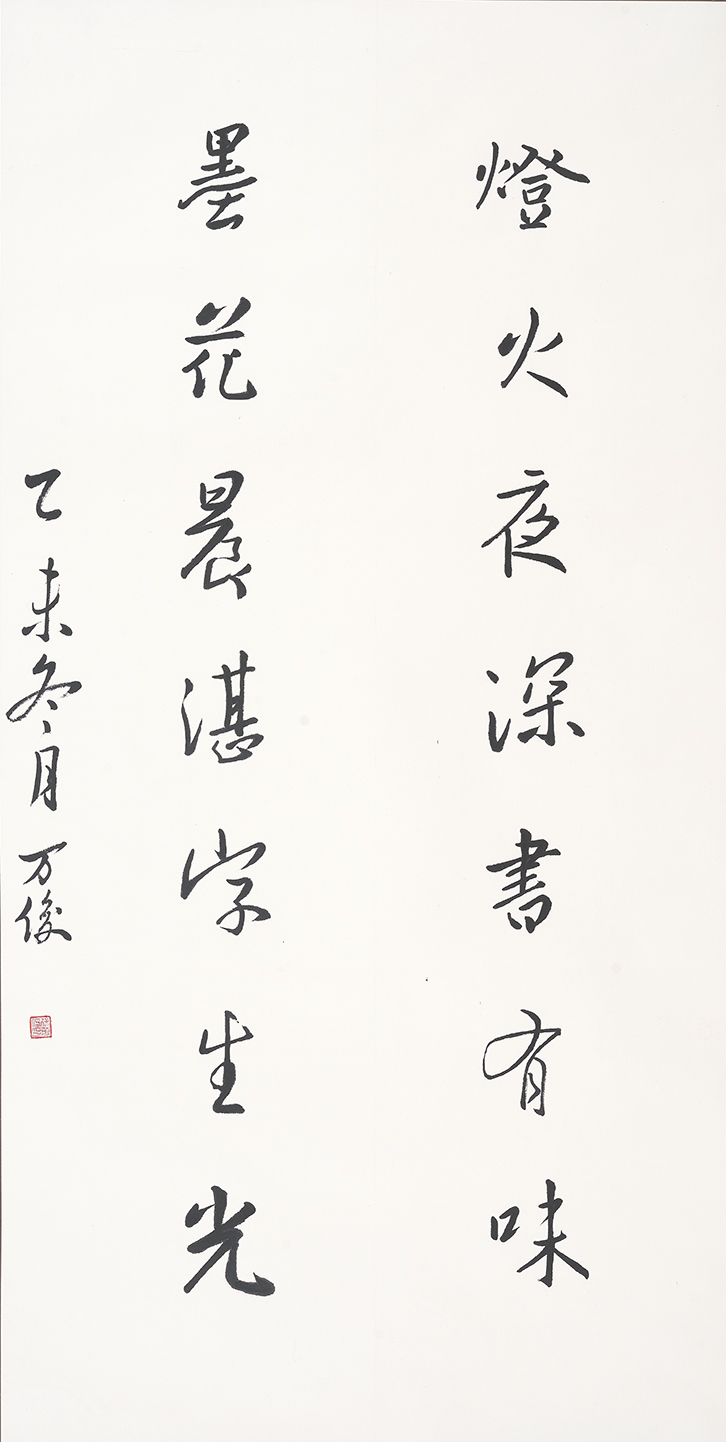 燈火夜深書有味
墨花晨湛字生光
乙未冬月 万俊